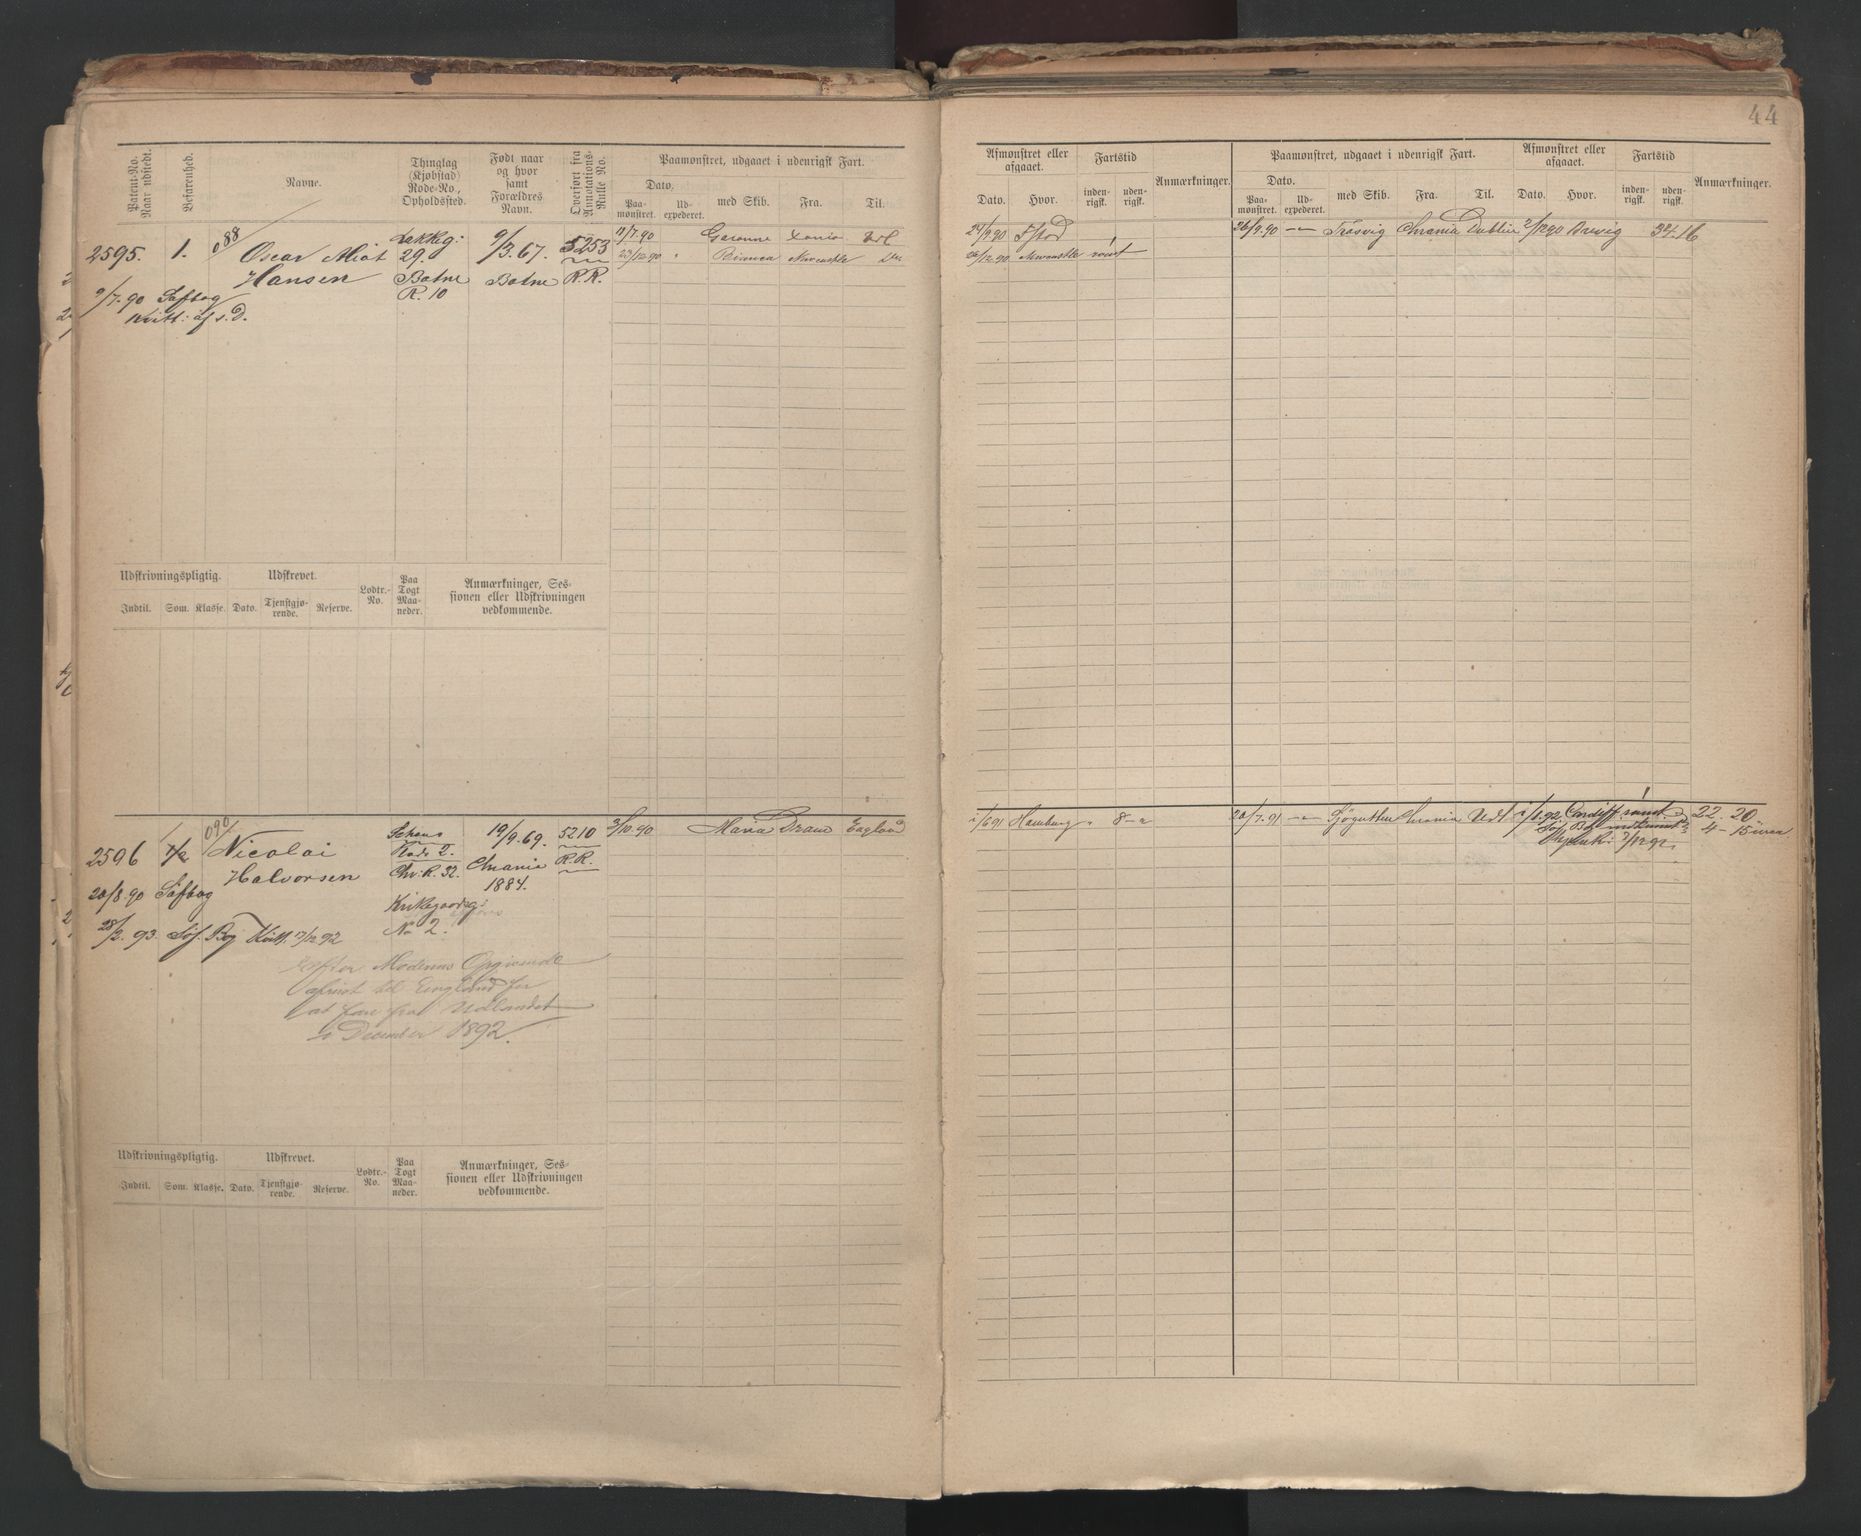 44
Patent-No. Naar udstedt.
Befarenhed.
Navne.
Thinglag (Kjøbstad) Rode-No., Opholdssted.
Født naar og hvor samt Forældres Navn.
Overført fra Annotations-Rulle No.
Paamønstret, udgaaet i udenrigsk Fart.
Dato.
Paamønstret.
Udexpederet.
med Skib.
Fra.
Til.
Afmønstret eller afgaaet.
Dato.
Hvor.
Fartstid
indenrigsk.
udenrigsk.
Anmærkninger.
Paamønstret, udgaaet i udenrigsk Fart.
Dato.
Paamønstret.
Udexpederet.
med Skib.
Fra.
Til.
Afmønstret eller afgaaet.
Dato.
Hvor.
Fartstid
indenrigsk.
udenrigsk.
Anmærkninger.
2595. 1. 88
Oscar
Hansen
29.
Botne
R. 10
9/3.67.
Botne
5253
R.R.
11/7.90 Garonne
23/12.90 " Bianca
24/9.90 Fstad
26/9.90 — Frosvig Chrania Dublin 2/12.90 Brevig 34.16
9/7.90 Søfbog
Kvitt: af s. D.
Udskrivningspligtig.
Indtil. Som. Klasse.
Udskrevet.
Dato. Tjenstgjørende. Reserve.
Lodtr.-No.
Paa Togt Maaneder.
Anmærkninger, Sessionen eller Udskrivningen vedkommende.
2596 1/2 090
Nicolai
Halvorsen
Rode 2.
Chr. R. 32.
Kirkegaardsg:
No 2.
19/9.69.
Chrania
1884.
5210
R.R.
3/10.90 Maria Dram England
1/6.91 Hamburg " 8 - "
20/7.91 — Sjøgutten Chrania Udl. 1/1.92 Cardiff rømt 22 - 20
4 - 15
20/8.90 Søfbog
28/2.93. Søf. Bog Kvitt. 17/12 92
Efter Moderens Opgivende
afreist til England for
at fare fra Udlandet
i December 1892.
Udskrivningspligtig.
Indtil. Som. Klasse.
Udskrevet.
Dato. Tjenstgjørende. Reserve.
Lodtr.-No.
Paa Togt Maaneder.
Anmærkninger, Sessionen eller Udskrivningen vedkommende.